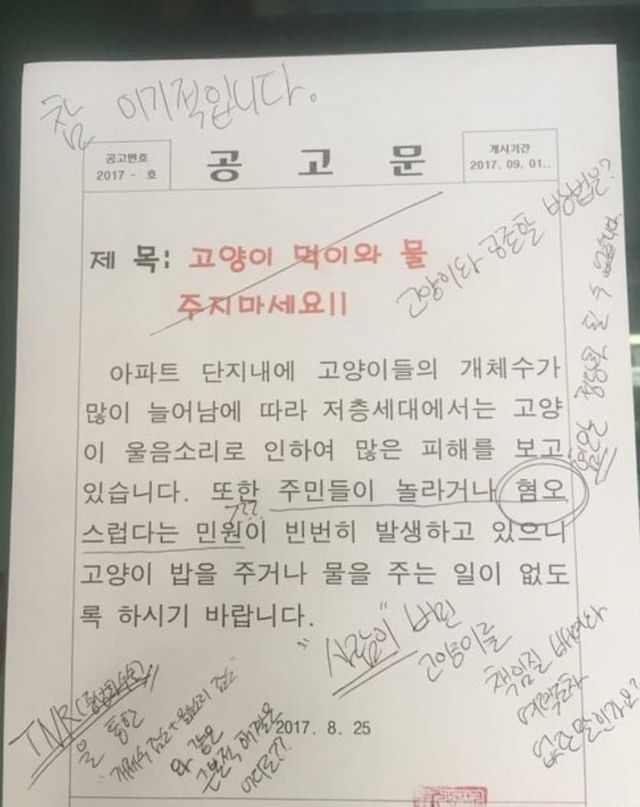 참 이기적입니다.
공고번호
2017 - 호
공 고 문
게시기간
2017. 09. 01..
제 목: 고양이 먹이와 물
주지마세요!!
고양이와 공존할 방법은?
아파트 단지내에 고양이들의 개체수가
많이 늘어남에 따라 저층세대에서는 고양
이 울음소리로 인하여 많은 피해를 보고
있습니다. 또한 주민들이 놀라거나 혐오
스럽다는 민원이 빈번히 발생하고 있으니
고양이 밥을 주거나 물을 주는 일이 없도
록 하시기 바랍니다.
혐오는 정당화 될 수 없습니다
"사람이" 버린
고양이를
책임질 배려와
여력조차
없단 말인가요?
TNR(중성화수술)
을 통한
개체수 감소 + 울음소리 감소
와 같은
근본적 해결은
2017. 8. 25